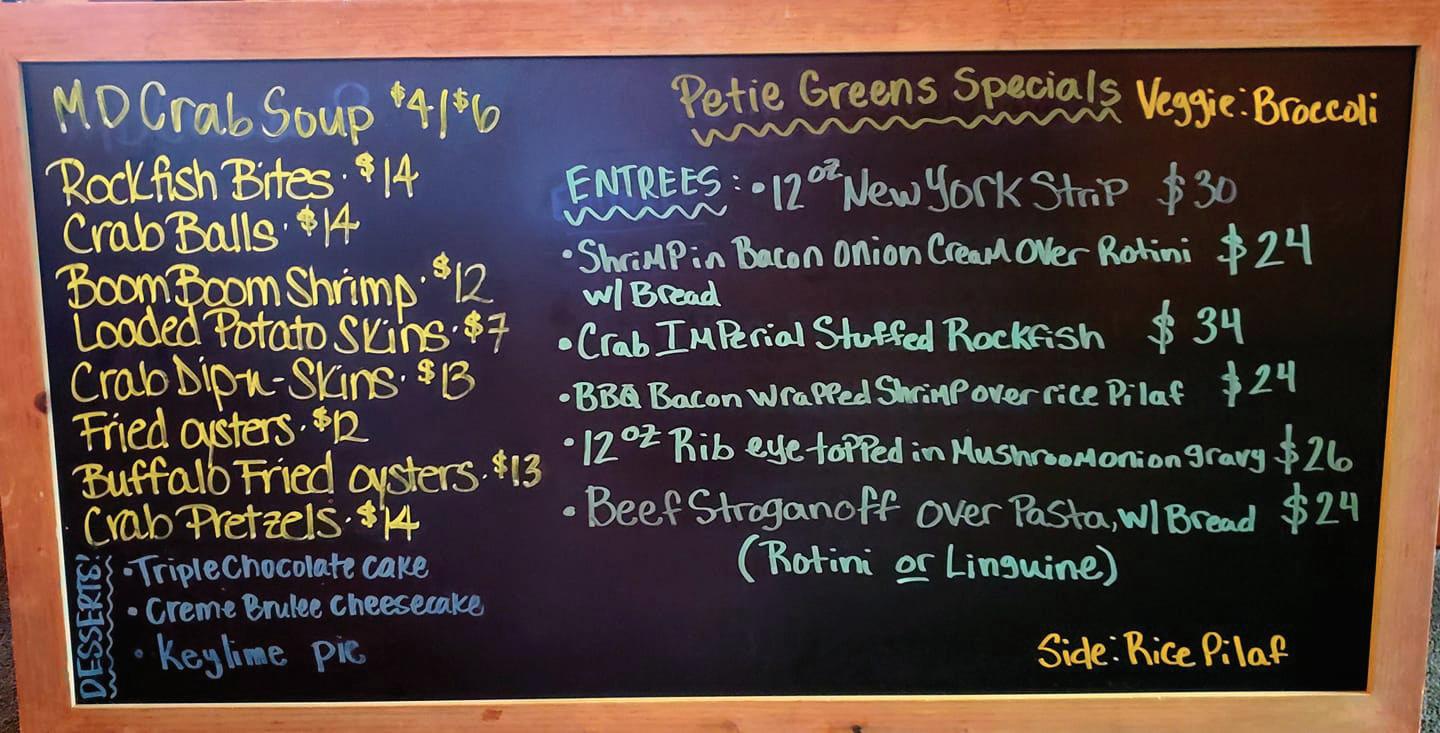 MD Crab Soup $4/$6
Rockfish Bites · $14
Crab Balls · $14
Boom Boom Shrimp · $12
Loaded Potato Skins · $7
Crab Dip-n-Skins · $13
Fried oysters · $12
Buffalo Fried oysters · $13
Crab Pretzels · $14
DESSERTS:
• Triple Chocolate cake
• Creme Brulee cheesecake
• Keylime pie
Petie Greens Specials
Veggie: Broccoli
ENTREES: • 12oz New York Strip $30
• Shrimp in Bacon onion Cream over Rotini $24
w/ Bread
• Crab Imperial Stuffed Rockfish $34
• BBQ Bacon wrapped Shrimp over rice Pilaf $24
• 12oz Rib eye topped in Mushroom onion gravy $26
• Beef Stroganoff over Pasta, w/ Bread $24
(Rotini or Linguine)
Side: Rice Pilaf